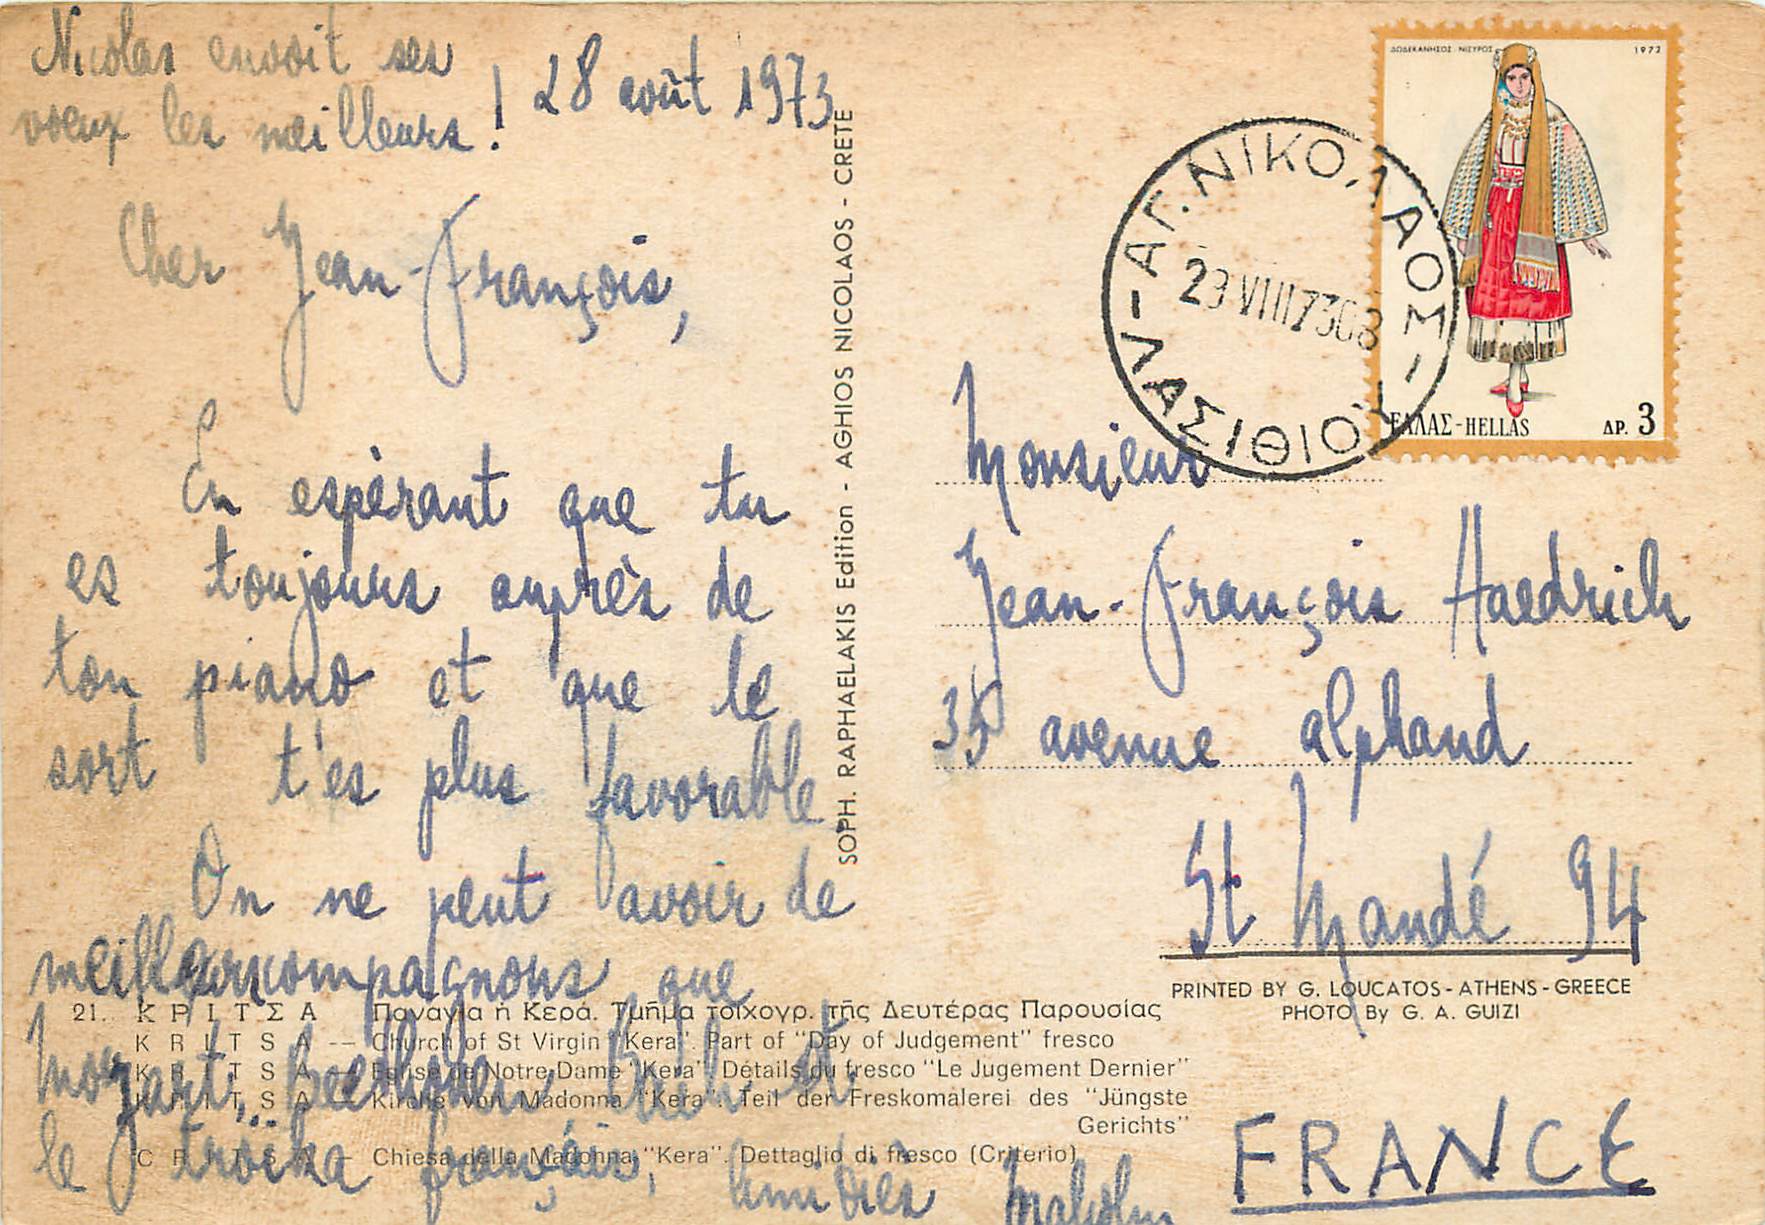 Nicolas envoit ses
voeux les meilleurs !
28 août 1973
Cher Jean-François,
En espérant que tu
es toujours auprès de
ton piano et que le
sort t'es plus favorable
On ne peut avoir de
meilleurs compagnons que
Mozart, Beethoven, Bach et
le troïka français, Amitiés Malcolm
SOPH. RAPHAELAKIS Edition - AGHIOS NICOLAOS - CRETE
ΔΩΔΕΚΑΝΗΣΟΣ ΝΙΣΥΡΟΣ 1972
ΕΛΛΑΣ-HELLAS ΔΡ. 3
ΑΓ. ΝΙΚΟΛΑΟΣ - ΛΑΣΙΘΙΟΥ -
29 VIII 73
Monsieur
Jean-François Haedrich
35 avenue Alphand
St Mandé 94
PRINTED BY G. LOUCATOS - ATHENS - GREECE
PHOTO By G. A. GUIZI
FRANCE
21. ΚΡΙΤΣΑ Παναγία ἡ Κερά. Τμῆμα τοιχογρ. τῆς Δευτέρας Παρουσίας
KRITSA -- Church of St Virgin "Kera". Part of "Day of Judgement" fresco
KRITSA — Eglise de Notre-Dame "Kera". Détails du fresco "Le Jugement Dernier"
KRITSA — Kirche von Madonna "Kera". Teil der Freskomalerei des "Jüngste
Gerichts"
CRITSA — Chiesa della Madonna "Kera". Dettaglio di fresco (Criterio)